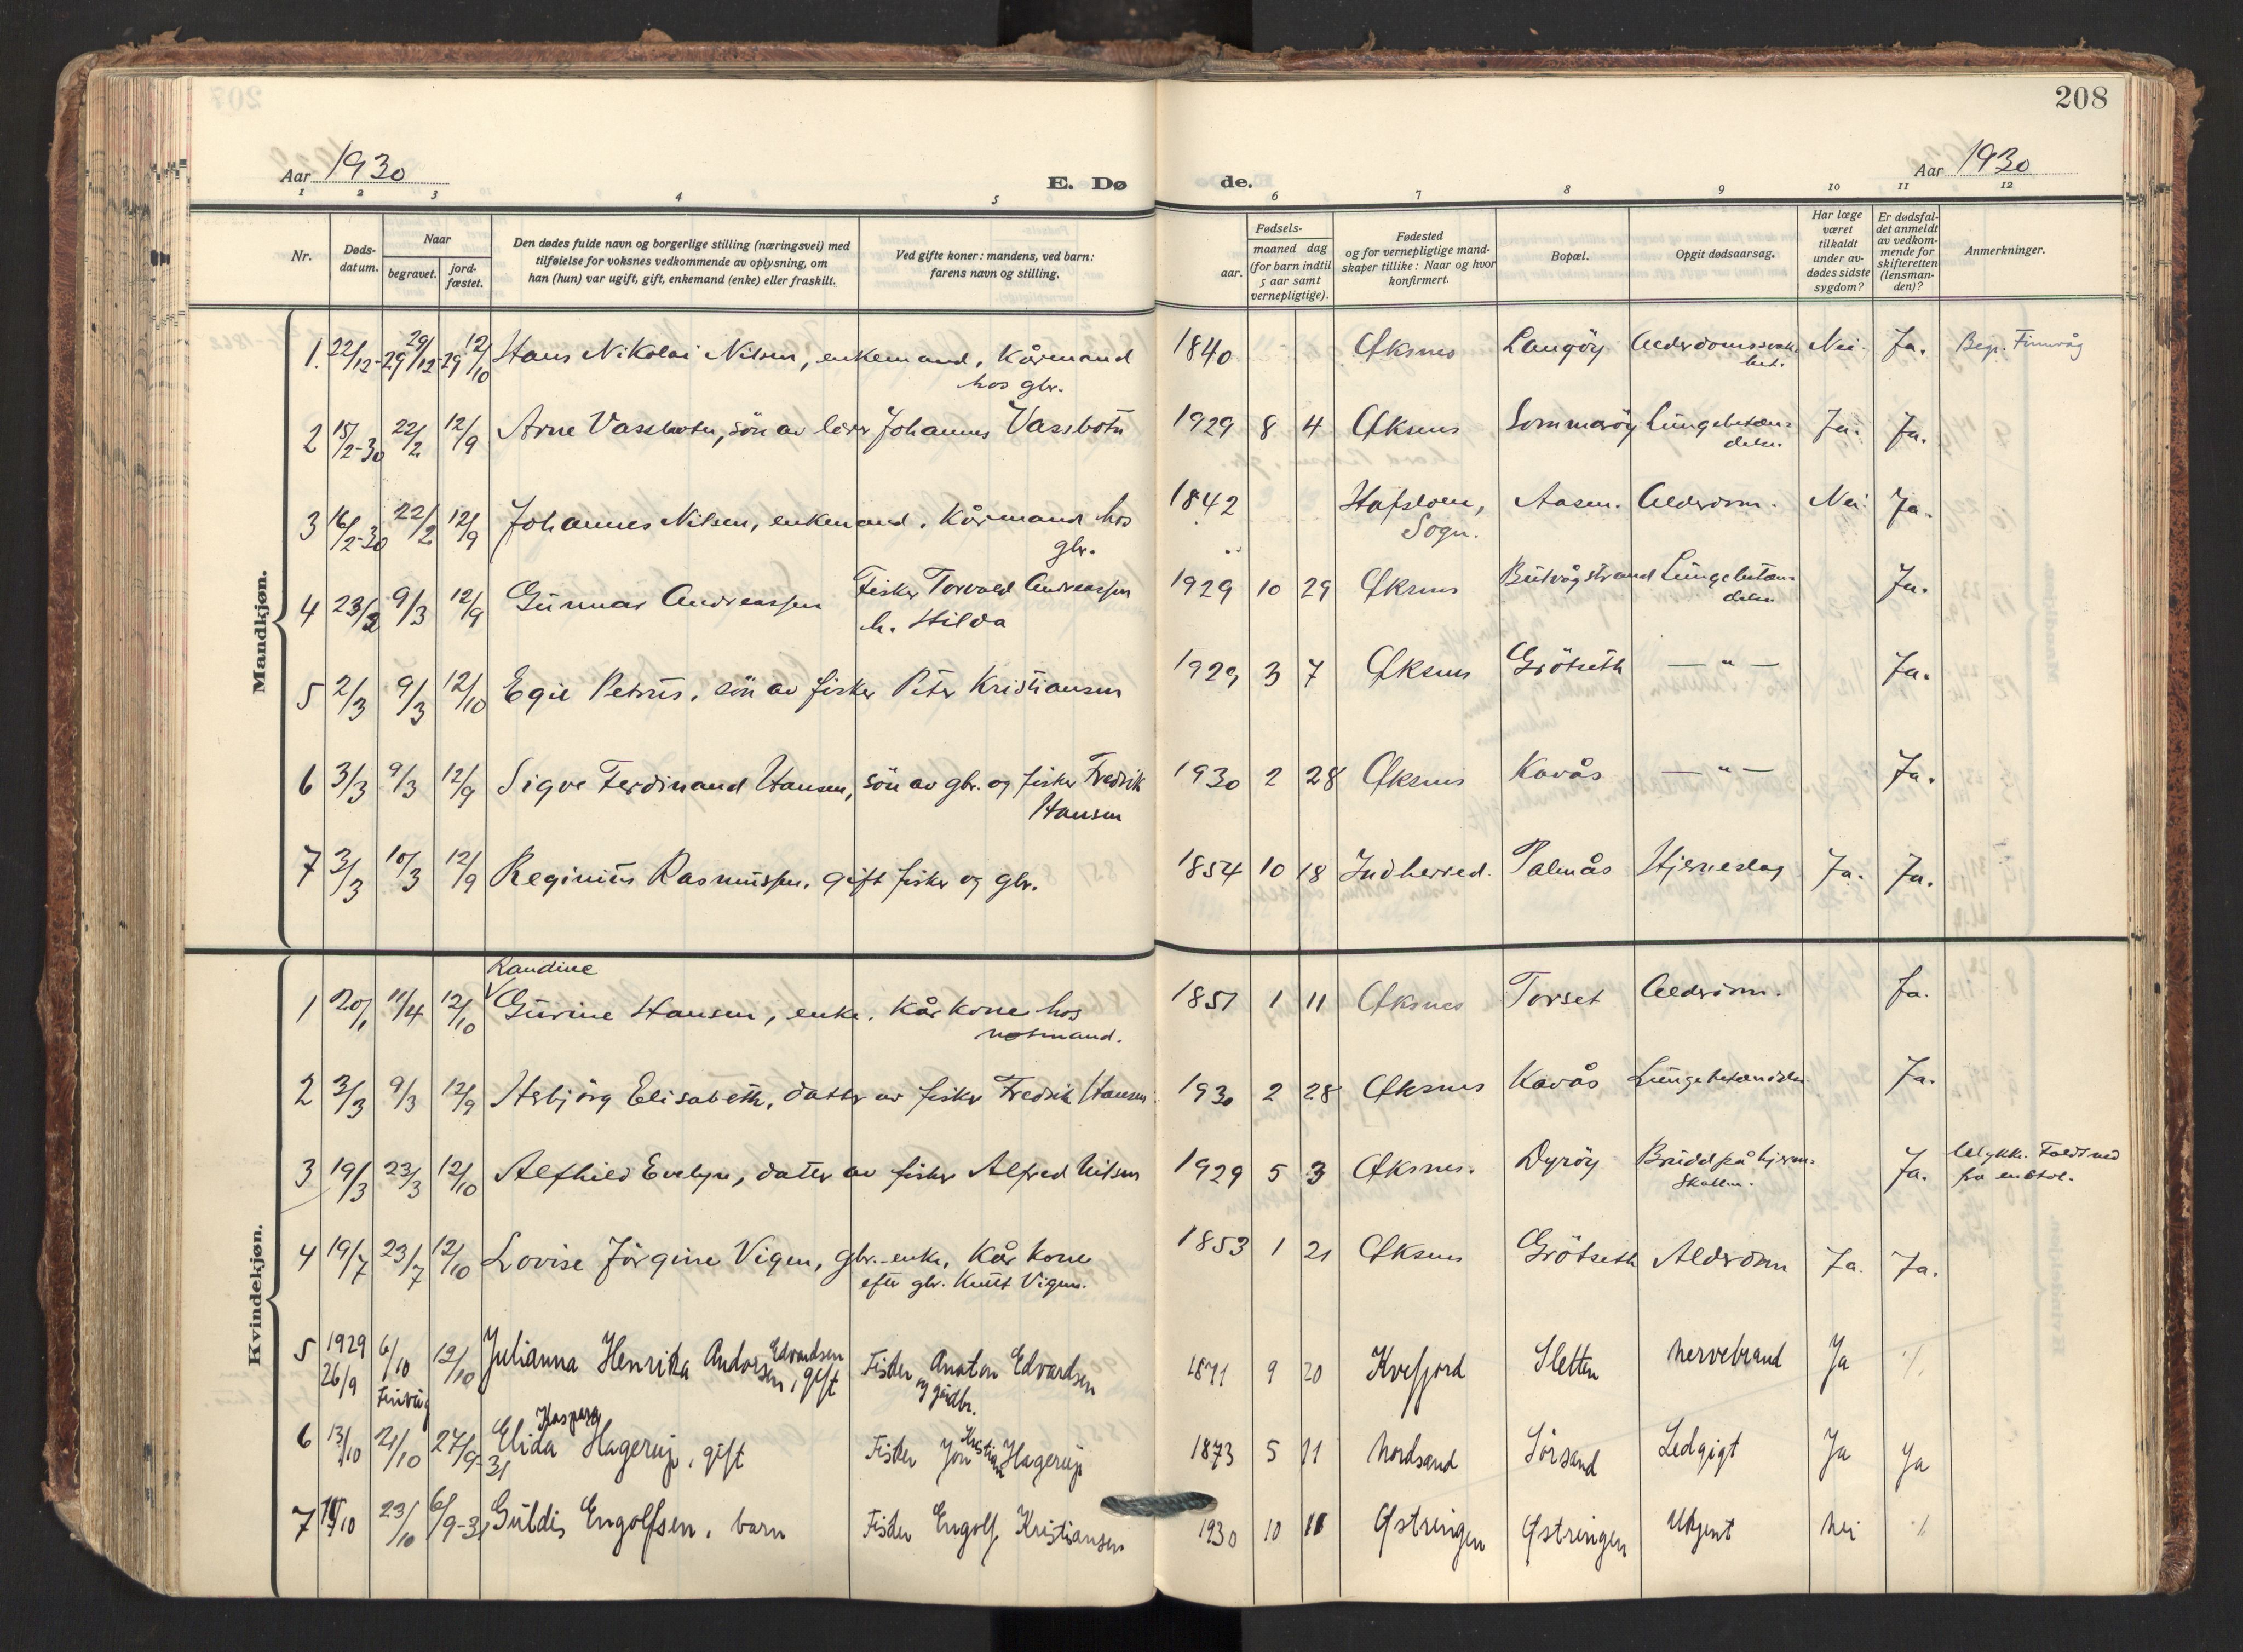 208
Aar 1930
E. Dø de.
Aar 1930
1 2 3 4 5 6 7 8 9 10 11 12
Nr.
Døds-
datum.
Naar
begravet.
jord-
fæstet.
Den dødes fulde navn og borgerlige stilling (næringsvei) med
tilføielse for voksnes vedkommende av oplysning, om
han (hun) var ugift, gift, enkemand (enke) eller fraskilt.
Ved gifte koner: mandens, ved barn:
farens navn og stilling.
Fødsels-
aar.
maaned dag
(for barn indtil
5 aar samt
vernepligtige).
Fødested
og for vernepligtige mand-
skaper tillike: Naar og hvor
konfirmert.
Bopæl.
Opgit dødsaarsag.
Har læge
været
tilkaldt
under av-
dødes sidste
sygdom?
Er dødsfal-
det anmeldt
av vedkom-
mende for
skifteretten
(lensman-
den)?
Anmerkninger.
Mandkjøn.
1. 22/12-29 29/12-29 12/10 Hans Nikolai Nilsen, enkemand, Kårmand 1840 Øksnes Langöy Alderdomssvak- Nei. Ja. Begr. Finnvåg
hos gbr. het.
2 15/2-30 22/2 12/9 Arne Vassbotn, sön av lærer Johannes Vassbotn 1929 8 4 Øksnes Sommaröy Lungebetæn- Ja. Ja.
delse.
3 16/2-30 22/2 12/9 Johannes Nilsen, enkemand. Kårmand hos 1842 Hafsloen, Aasen. Alderdom. Nei Ja.
gbr. Sogn.
4 23/2 9/3 12/9 Gunnar Andreassen Fisker Torvald Andreassen 1929 10 29 Øksnes Butvågstrand Lungebetæn- Ja.
h. Hilda delse
5 2/3 9/3 12/10 Egil Petrus, sön av fisker Peter Kristiansen 1929 3 7 Øksnes Grötseth — " — Ja.
6 3/3 9/3 12/9 Sigve Ferdinand Hansen, sön av gbr. og fisker Fredrik 1930 2 28 Øksnes Kavås — " — Ja.
Hansen
7 3/3 10/3 12/9 Reginius Rasmussen, gift fisker og gbr. 1854 10 18 Indherred. Palmås Hjerneslag Ja. Ja.
Kvindekjøn.
Randine
1 20/1 11/4 12/10 Gurine Hansen, enke. Kårkone hos 1851 1 11 Øksnes Torset Alderdom. Ja.
notmand.
2 3/3 9/3 12/9 Herbjörg Elisabeth, datter av fisker Fredrik Hansen 1930 2 28 Øksnes Kavås Lungebetændelse Ja.
3 19/3 23/3 12/10 Alfhild Evelyn, datter av fisker Alfred Nilsen 1929 5 3 Øksnes. Dyröy Brudd på hjerne- Ja. Ulykke. Faldt ned
skallen. fra en stol.
4 19/7 23/7 12/10 Lovise Jörgine Vigen, gbr.-enke, Kårkone 1853 1 21 Øksnes Grötseth Alderdom Ja. Ja.
efter gbr. Knut Vigen.
5 1929 26/9 6/10 Finvåg 12/10 Julianna Henrika Andorsen, Edvardsen gift Fisker Anaton Edvardsen 1871 9 20 Kvefjord Sletten nervebrand Ja ·/.
og gårdbr.
Kaspara
6 13/10 21/10 27/9-31 Elida Hagerup, gift Fisker Jon Kristian Hagerup 1873 5 11 Nordsand Sörsand Ledgigt Ja Ja
7 /10 23/10 6/9-31 Guldis Engolfsen, barn Fisker Engolf Kristiansen 1930 10 11 Østrengen Østrengen Ukjent Nei ·/.